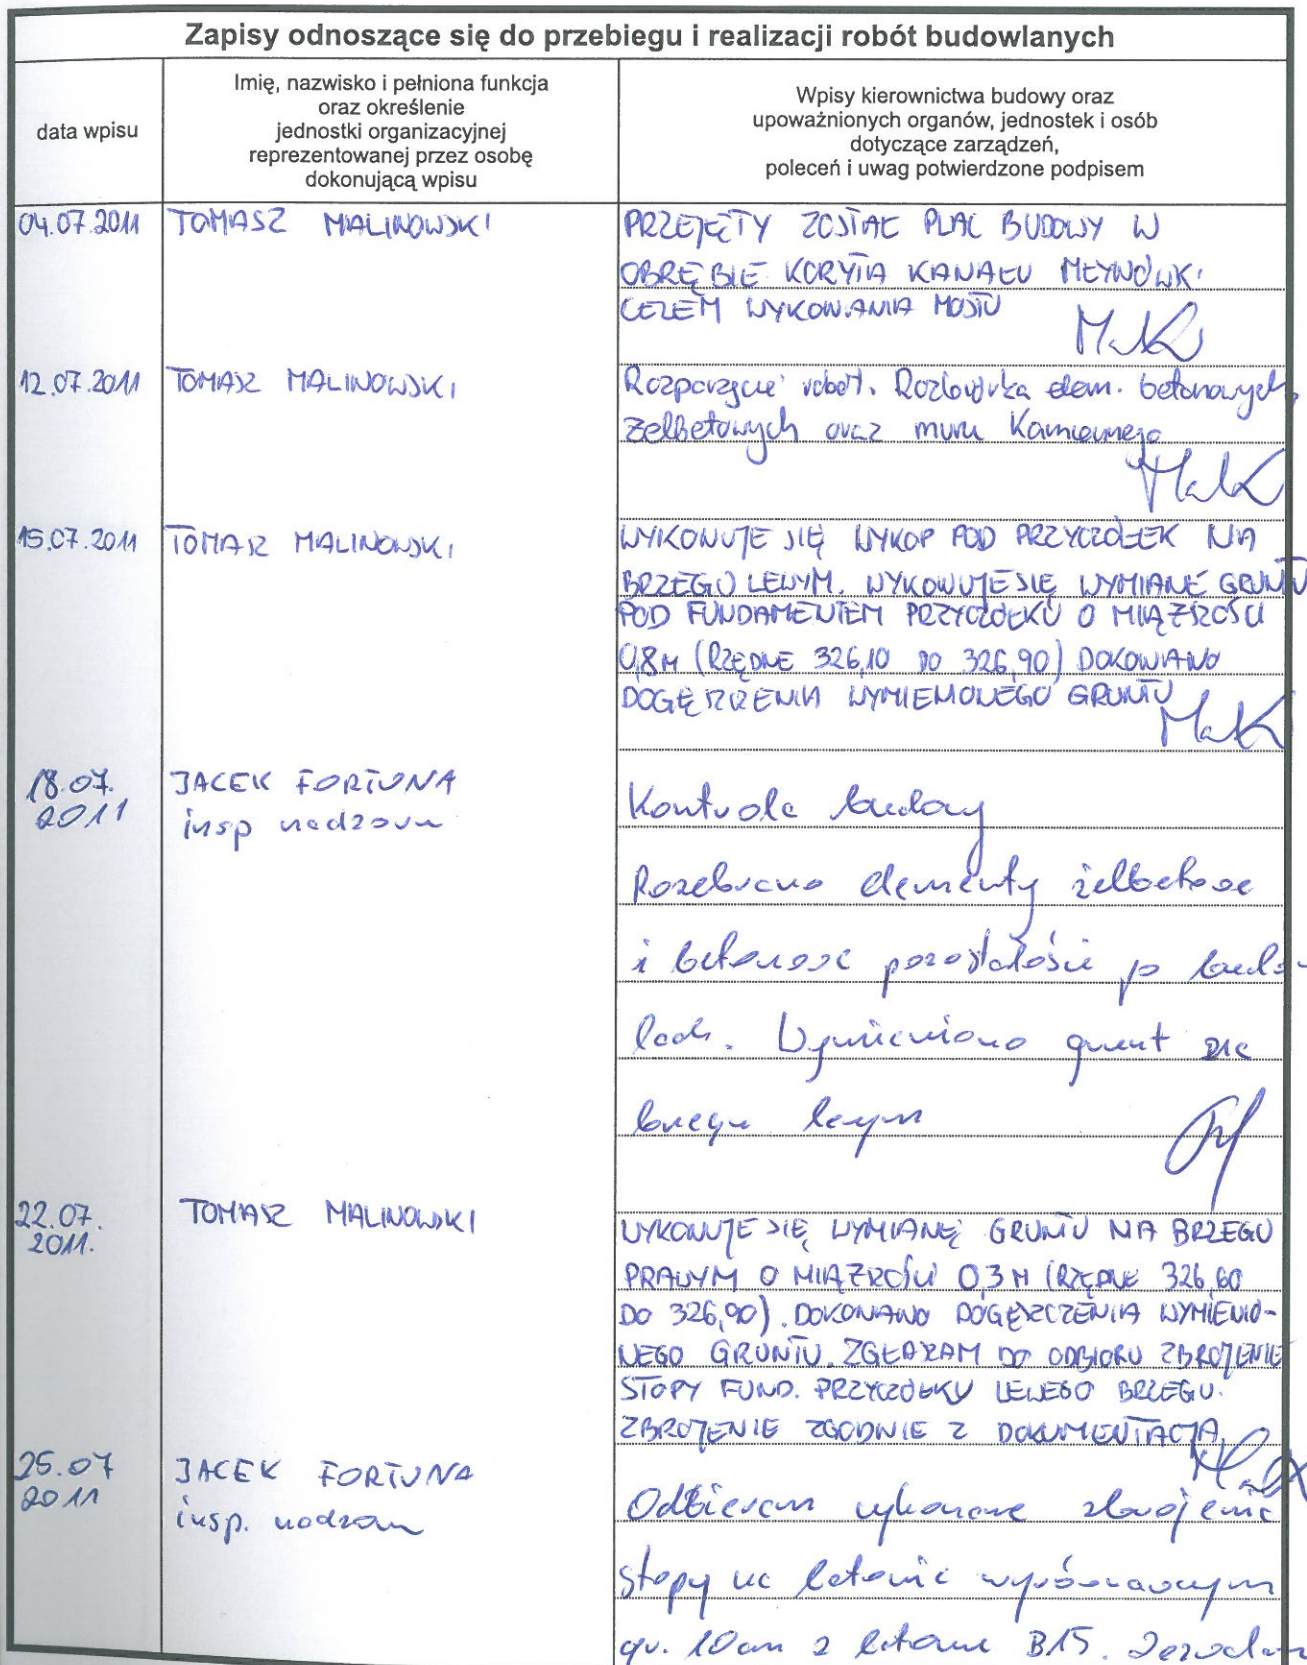 Zapisy odnoszące się do przebiegu i realizacji robót budowlanych
data wpisu
Imię, nazwisko i pełniona funkcja
oraz określenie
jednostki organizacyjnej
reprezentowanej przez osobę
dokonującą wpisu
Wpisy kierownictwa budowy oraz
upoważnionych organów, jednostek i osób
dotyczące zarządzeń,
poleceń i uwag potwierdzone podpisem
04.07.2011 TOMASZ MALINOWSKI
PRZEJĘTY ZOSTAŁ PLAC BUDOWY W
OBRĘBIE KORYTA KANAŁU MŁYNÓWKI
CELEM WYKONANIA MOSTU
12.07.2011 TOMASZ MALINOWSKI
robót. Rozbiórka elem. betonowych,
żelbetowych oraz muru kamiennego
15.07.2011 TOMASZ MALINOWSKI
WYKONUJE SIĘ WYKOP POD PRZYCZÓŁEK NA
BRZEGU LEWYM. WYKONUJE SIĘ WYMIANĘ GRUNTU
POD FUNDAMENTEM PRZYCZÓŁKU O MIĄŻSZOŚCI
0,8M (RZĘDNE 326,10 DO 326,90) DOKONANO
DOGĘSZCZENIA WYMIENIONEGO GRUNTU
18.07.
2011
JACEK FORTUNA
insp nadzoru
Kontrola budowy
Rozebrano elementy żelbetowe
i betonowe pozostałości po budo-
lach. Wymieniono grunt na
brzegu lewym
22.07.
2011.
TOMASZ MALINOWSKI
WYKONUJE SIĘ WYMIANĘ GRUNTU NA BRZEGU
PRAWYM O MIĄŻSZOŚCI 0,3 M (RZĘDNE 326,60
DO 326,90). DOKONANO DOGĘSZCZENIA WYMIENIO-
NEGO GRUNTU. ZGŁASZAM DO ODBIORU ZBROJENIE
STOPY FUND. PRZYCZÓŁKU LEWEGO BRZEGU.
ZBROJENIE ZGODNIE Z DOKUMENTACJĄ
25.07
2011
JACEK FORTUNA
insp. nadzoru
Odbieram wykonane zbrojenie
stopy na betonie wyrównawczym
gr. 10cm z betonu B15.